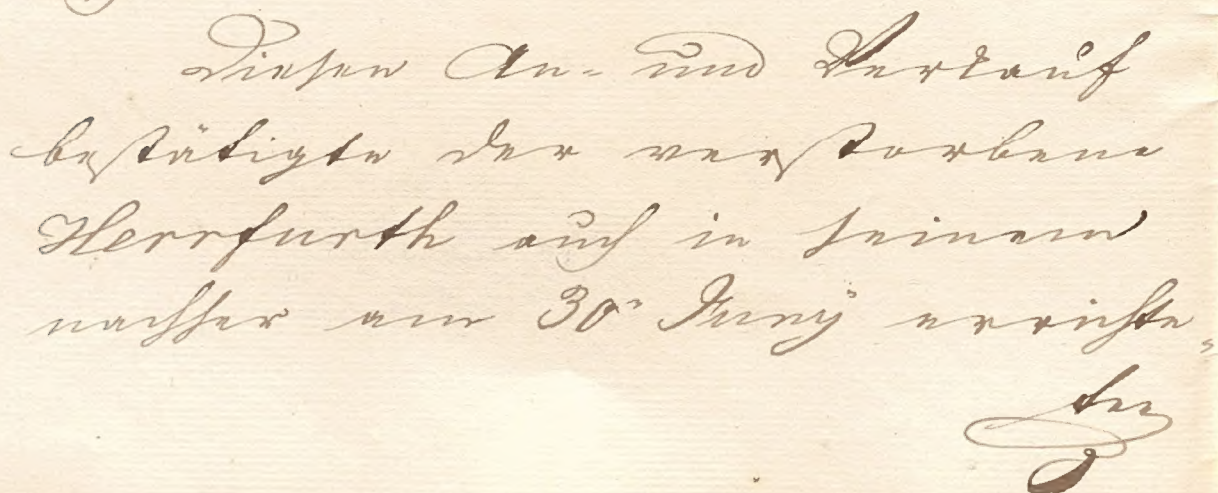 Diesen An- und Verkauf
bestätigte der verstorbene
Herrfurth auch in seinem
nachher am 30ⁿ Juny errichte-
ten